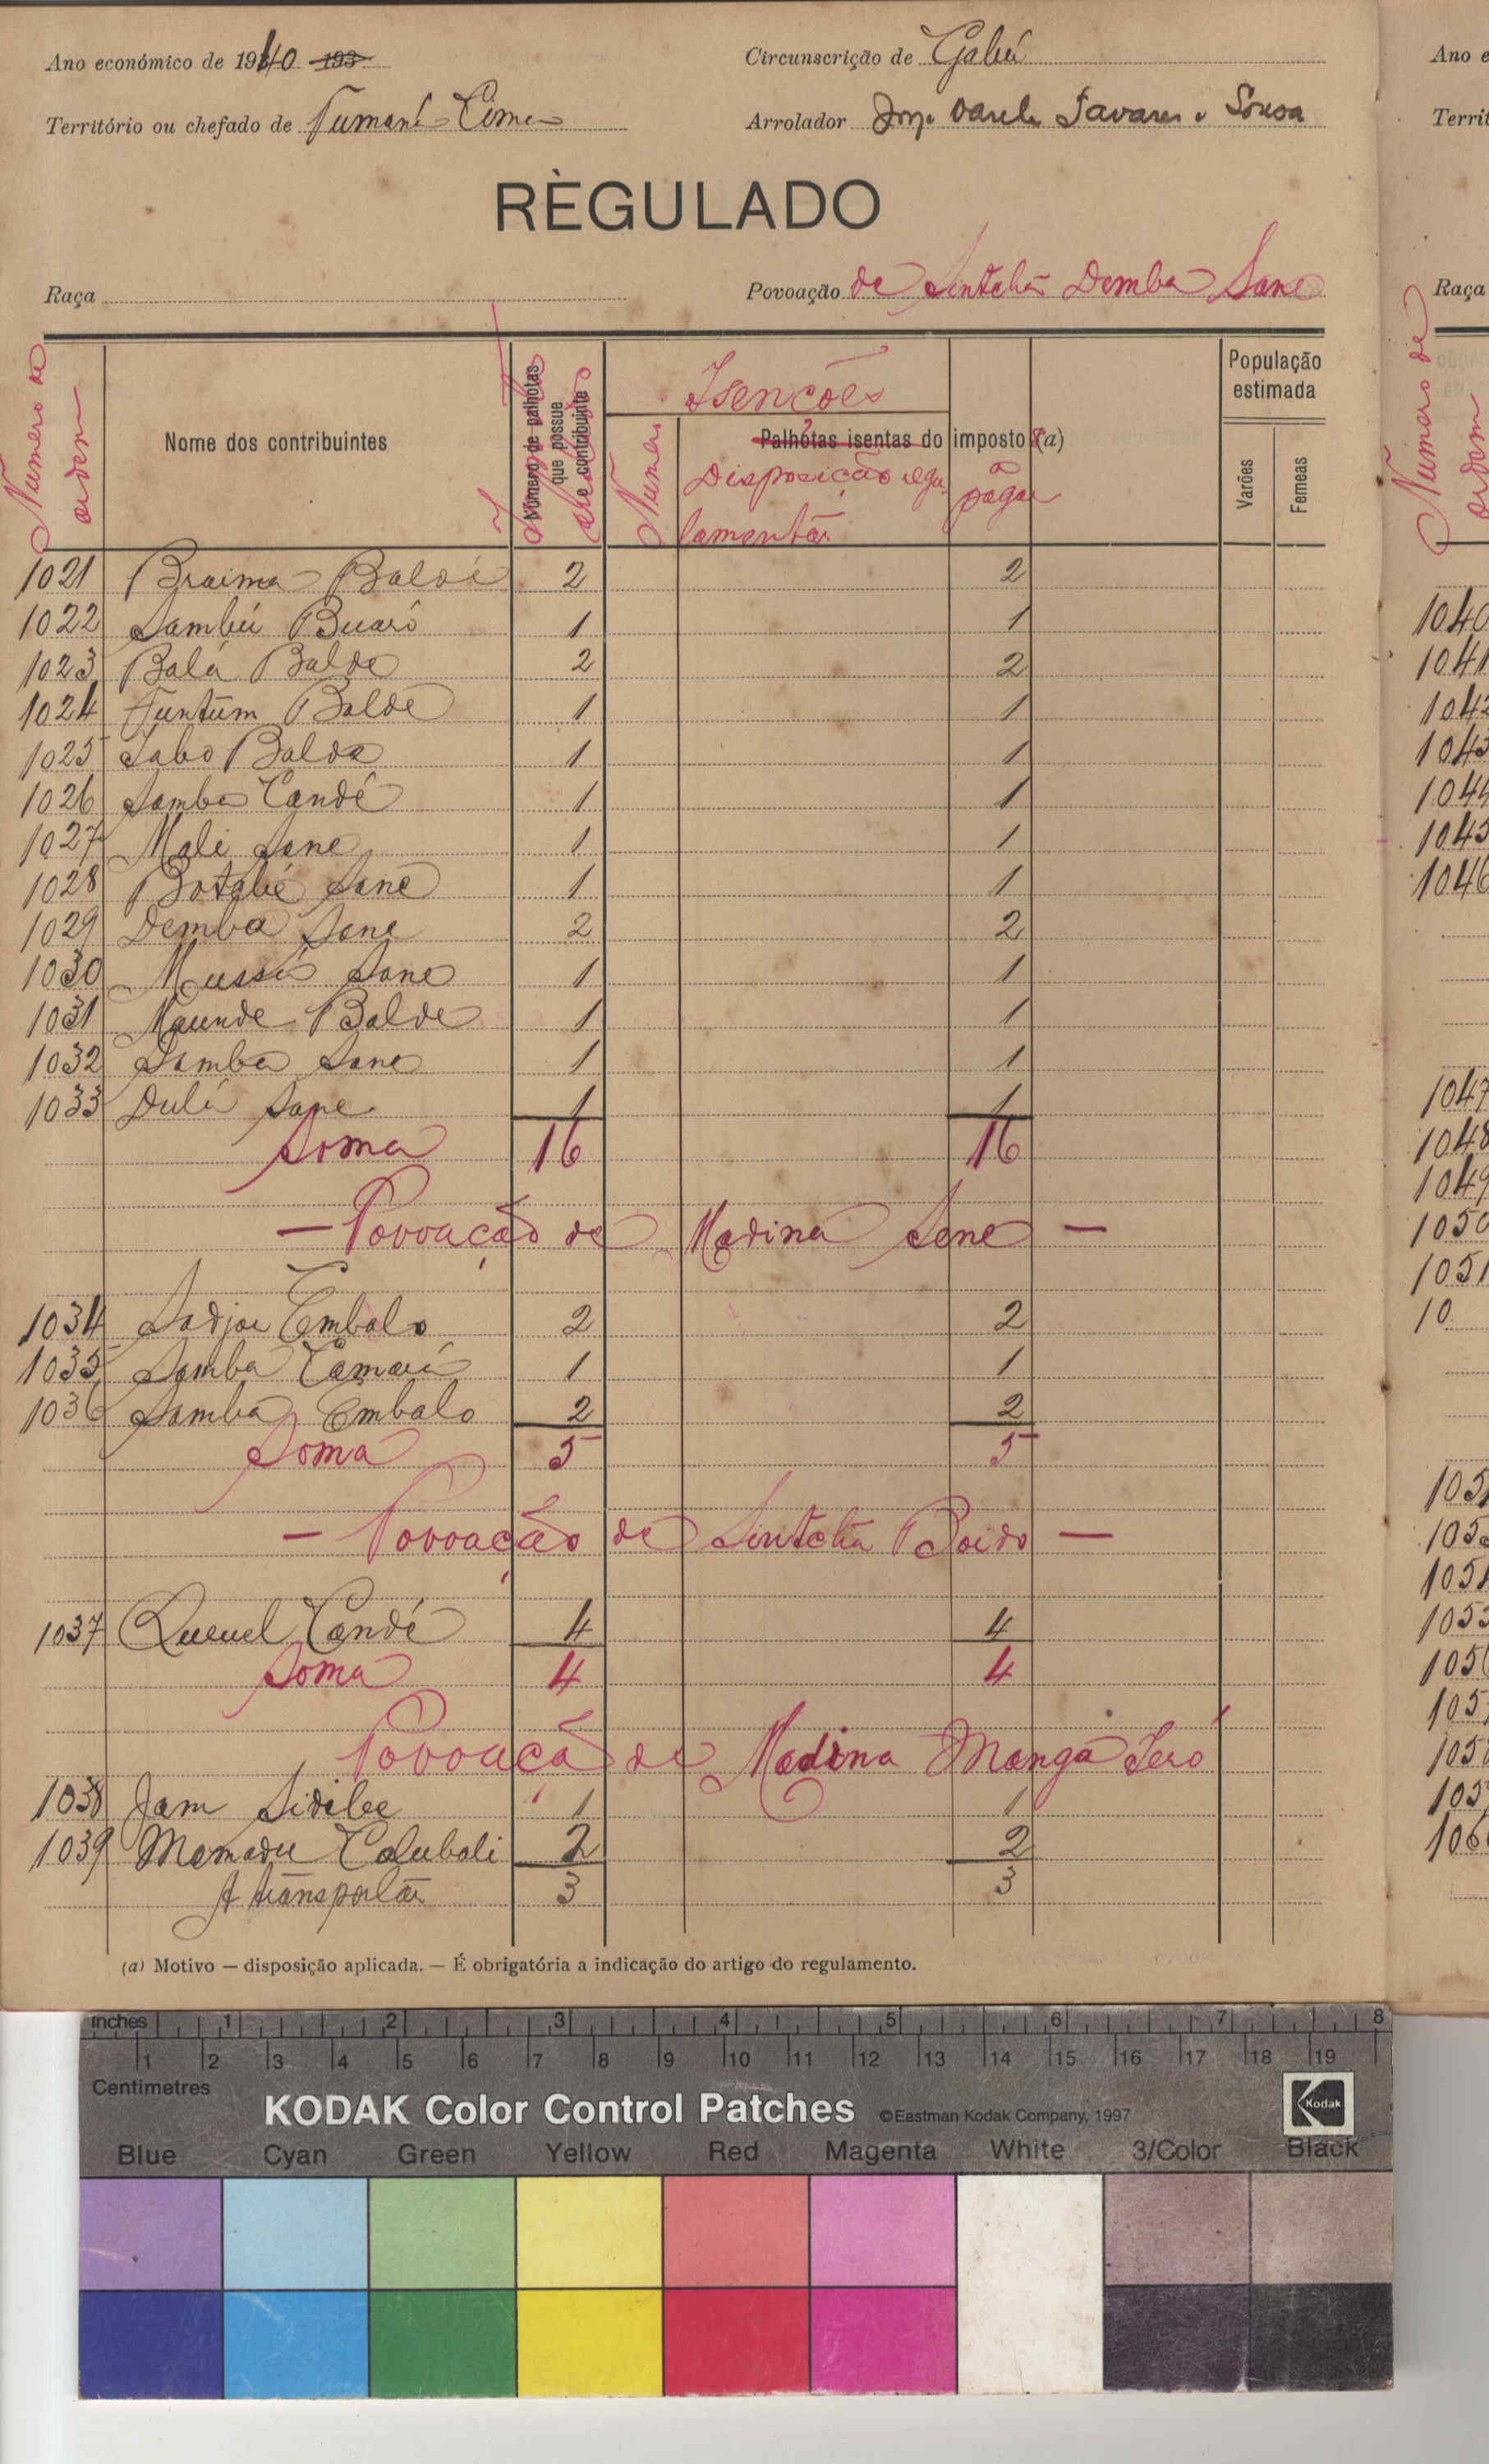 Ano económico de 1940 193
Circunscrição de Gabú
Território ou chefado de Tumaná Cima
Arrolador Tavares e Sousa
RÈGULADO
Raça
Povoação de Sintchã Demba Sane
Numero de ordem
Nome dos contribuintes
Número de palhotas que possue o contribuinte
Isenções
Numero
Palhotas isentas do imposto (a)
Disposição regulamentar
a pagar
População estimada
Varões
Femeas
1021 Braima Baldé 2 2
1022 Sambú Buaró 1 1
1023 Balá Balde 2 2
1024 Funtum Balde 1 1
1025 Sabo Balde 1 1
1026 Samba Candé 1 1
1027 Mali Sane 1 1
1028 Sane 1 1
1029 Demba Sane 2 2
1030 Mussá Sane 1 1
1031 Maunde Balde 1 1
1032 Samba Sane 1 1
1033 Dulá Sane 1 1
Soma 16 16
— Povoação de Madina Sane —
1034 Sadjo Embalo 2 2
1035 Samba Camará 1 1
1036 Samba Embalo 2 2
Soma 5 5
— Povoação de Sintchã Boido —
1037 Queuel Candé 4 4
Soma 4 4
Povoaçã de Madina Manga Seró
1038 Jam Sidibe 1 1
1039 Mamadu Colubali 2 2
A transportar 3 3
(a) Motivo — disposição aplicada. — É obrigatória a indicação do artigo do regulamento.
Ano e
Territ
Raça
Numero de ordem
1040
1041
1042
1043
1044
1045
1046
1047
1048
1049
1050
1051
10
inches 1 2 3 4 5 6 7 8
1 2 3 4 5 6 7 8 9 10 11 12 13 14 15 16 17 18 19
Centimetres
KODAK Color Control Patches ©Eastman Kodak Company, 1997 Kodak
Blue Cyan Green Yellow Red Magenta White 3/Color Black